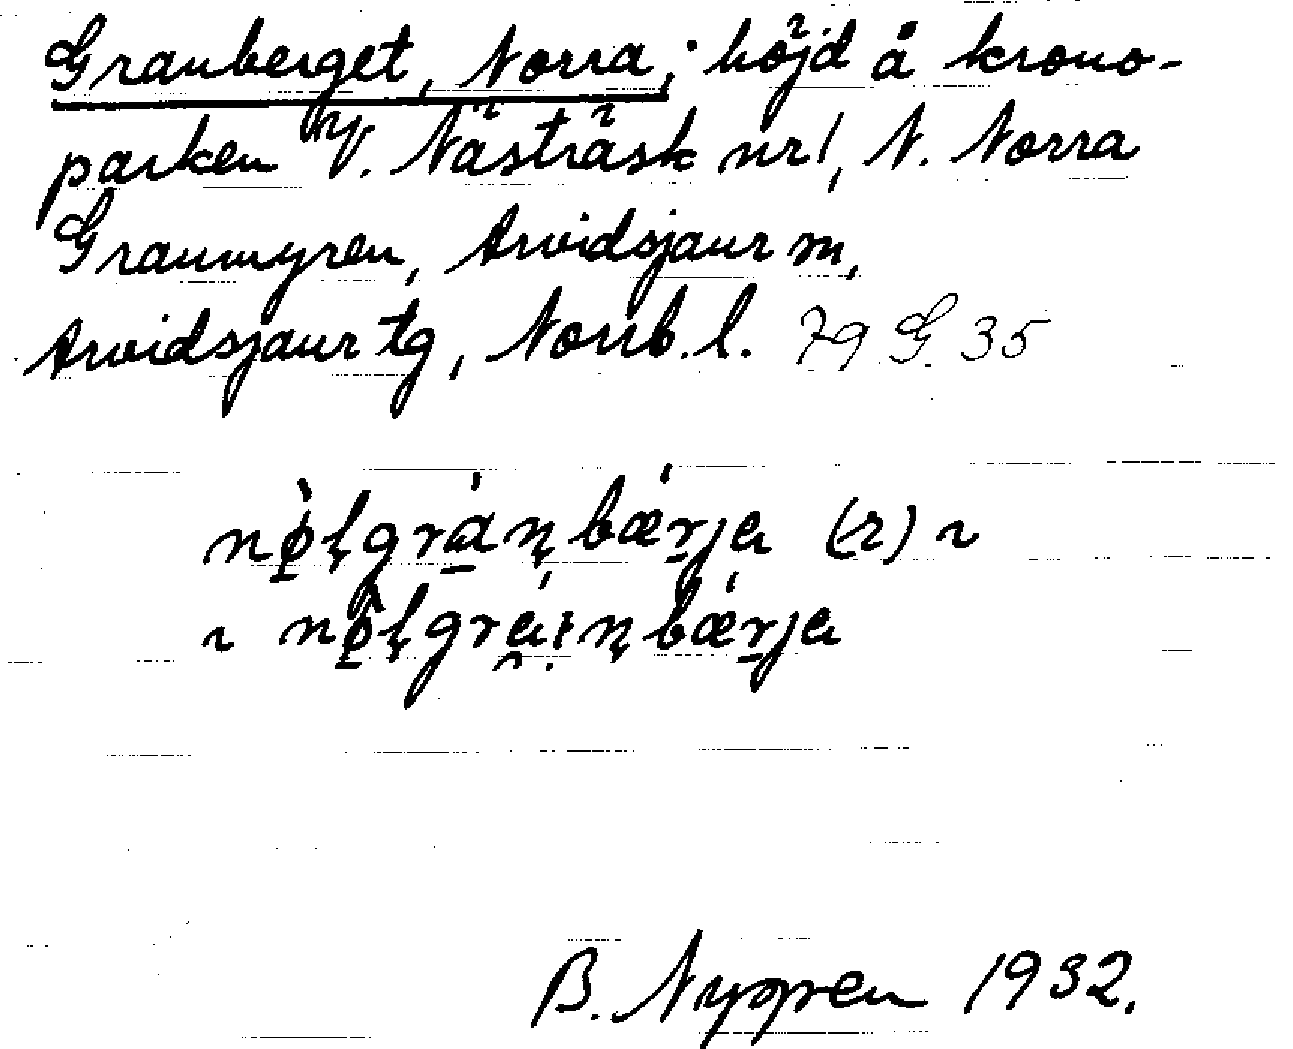 Granberget, Norra; höjd å krono-
parken V. Nästräsk nr 1, N. Norra
Granmyren, Arvidsjaur sn,
Arvidsjaur tg, Norrb. l. 79 G. 35
nø̀lgránbǽrja (r) ~
~ nø̀lgrá:nbǽrja
B. Nygren 1932.